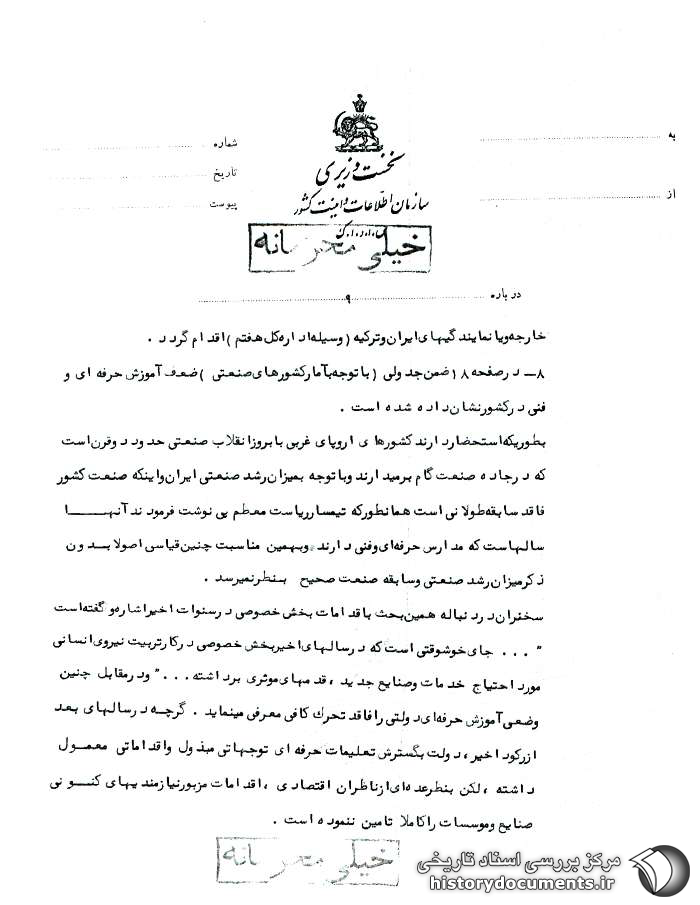 به
از
شماره
تاریخ
پیوست
نخست وزیری
سازمان اطلاعات و امنیت کشور
س.ا.و.ا.ک
خیلی محرمانه
درباره ۹
خارجه ویا نمایندگیهای ایران وترکیه (وسیله اداره کل هفتم) اقدام گردد .
۸ـ در صفحه ۱۸ ضمن جدولی (با توجه بآمار کشورهای صنعتی) ضعف آموزش حرفه ای و
فنی در کشور نشان داده شده است .
بطوریکه استحضار دارند کشورهای اروپای غربی با بروز انقلاب صنعتی حدود دوقرن است
که در جاده صنعت گام برمیدارند وبا توجه بمیزان رشد صنعتی ایران واینکه صنعت کشور
فاقد سابقه طولانی است همانطورکه تیمسار ریاست معظم پی نوشت فرمودند آنهـــا
سالهاست که مدارس حرفه ای وفنی دارند وبهمین مناسبت چنین قیاسی اصولا بدون
ذکر میزان رشد صنعتی وسابقه صنعت صحیح بنظر نمیرسد .
سخنران در دنباله همین بحث باقدامات بخش خصوصی در سنوات اخیر اشاره و گفته است
" ... جای خوشوقتی است که در سالهای اخیر بخش خصوصی در کار تربیت نیروی انسانی
مورد احتیاج خدمات وصنایع جدید ، قدمهای موثری برداشته ... " ودر مقابل چنین
وضعی آموزش حرفه ای دولتی را فاقد تحرك کافی معرفی مینماید . گرچه در سالهای بعد
از رکود اخیر ، دولت بگسترش تعلیمات حرفه ای توجهاتی مبذول واقداماتی معمـول
داشته ، لکن بنظر عده ای از ناظران اقتصادی ، اقدامات مزبور نیازمندیهای کنـونی
صنایع وموسسات را کاملا تامین ننموده است .
خیلی محرمانه
مرکز بررسی اسناد تاریخی
historydocuments.ir